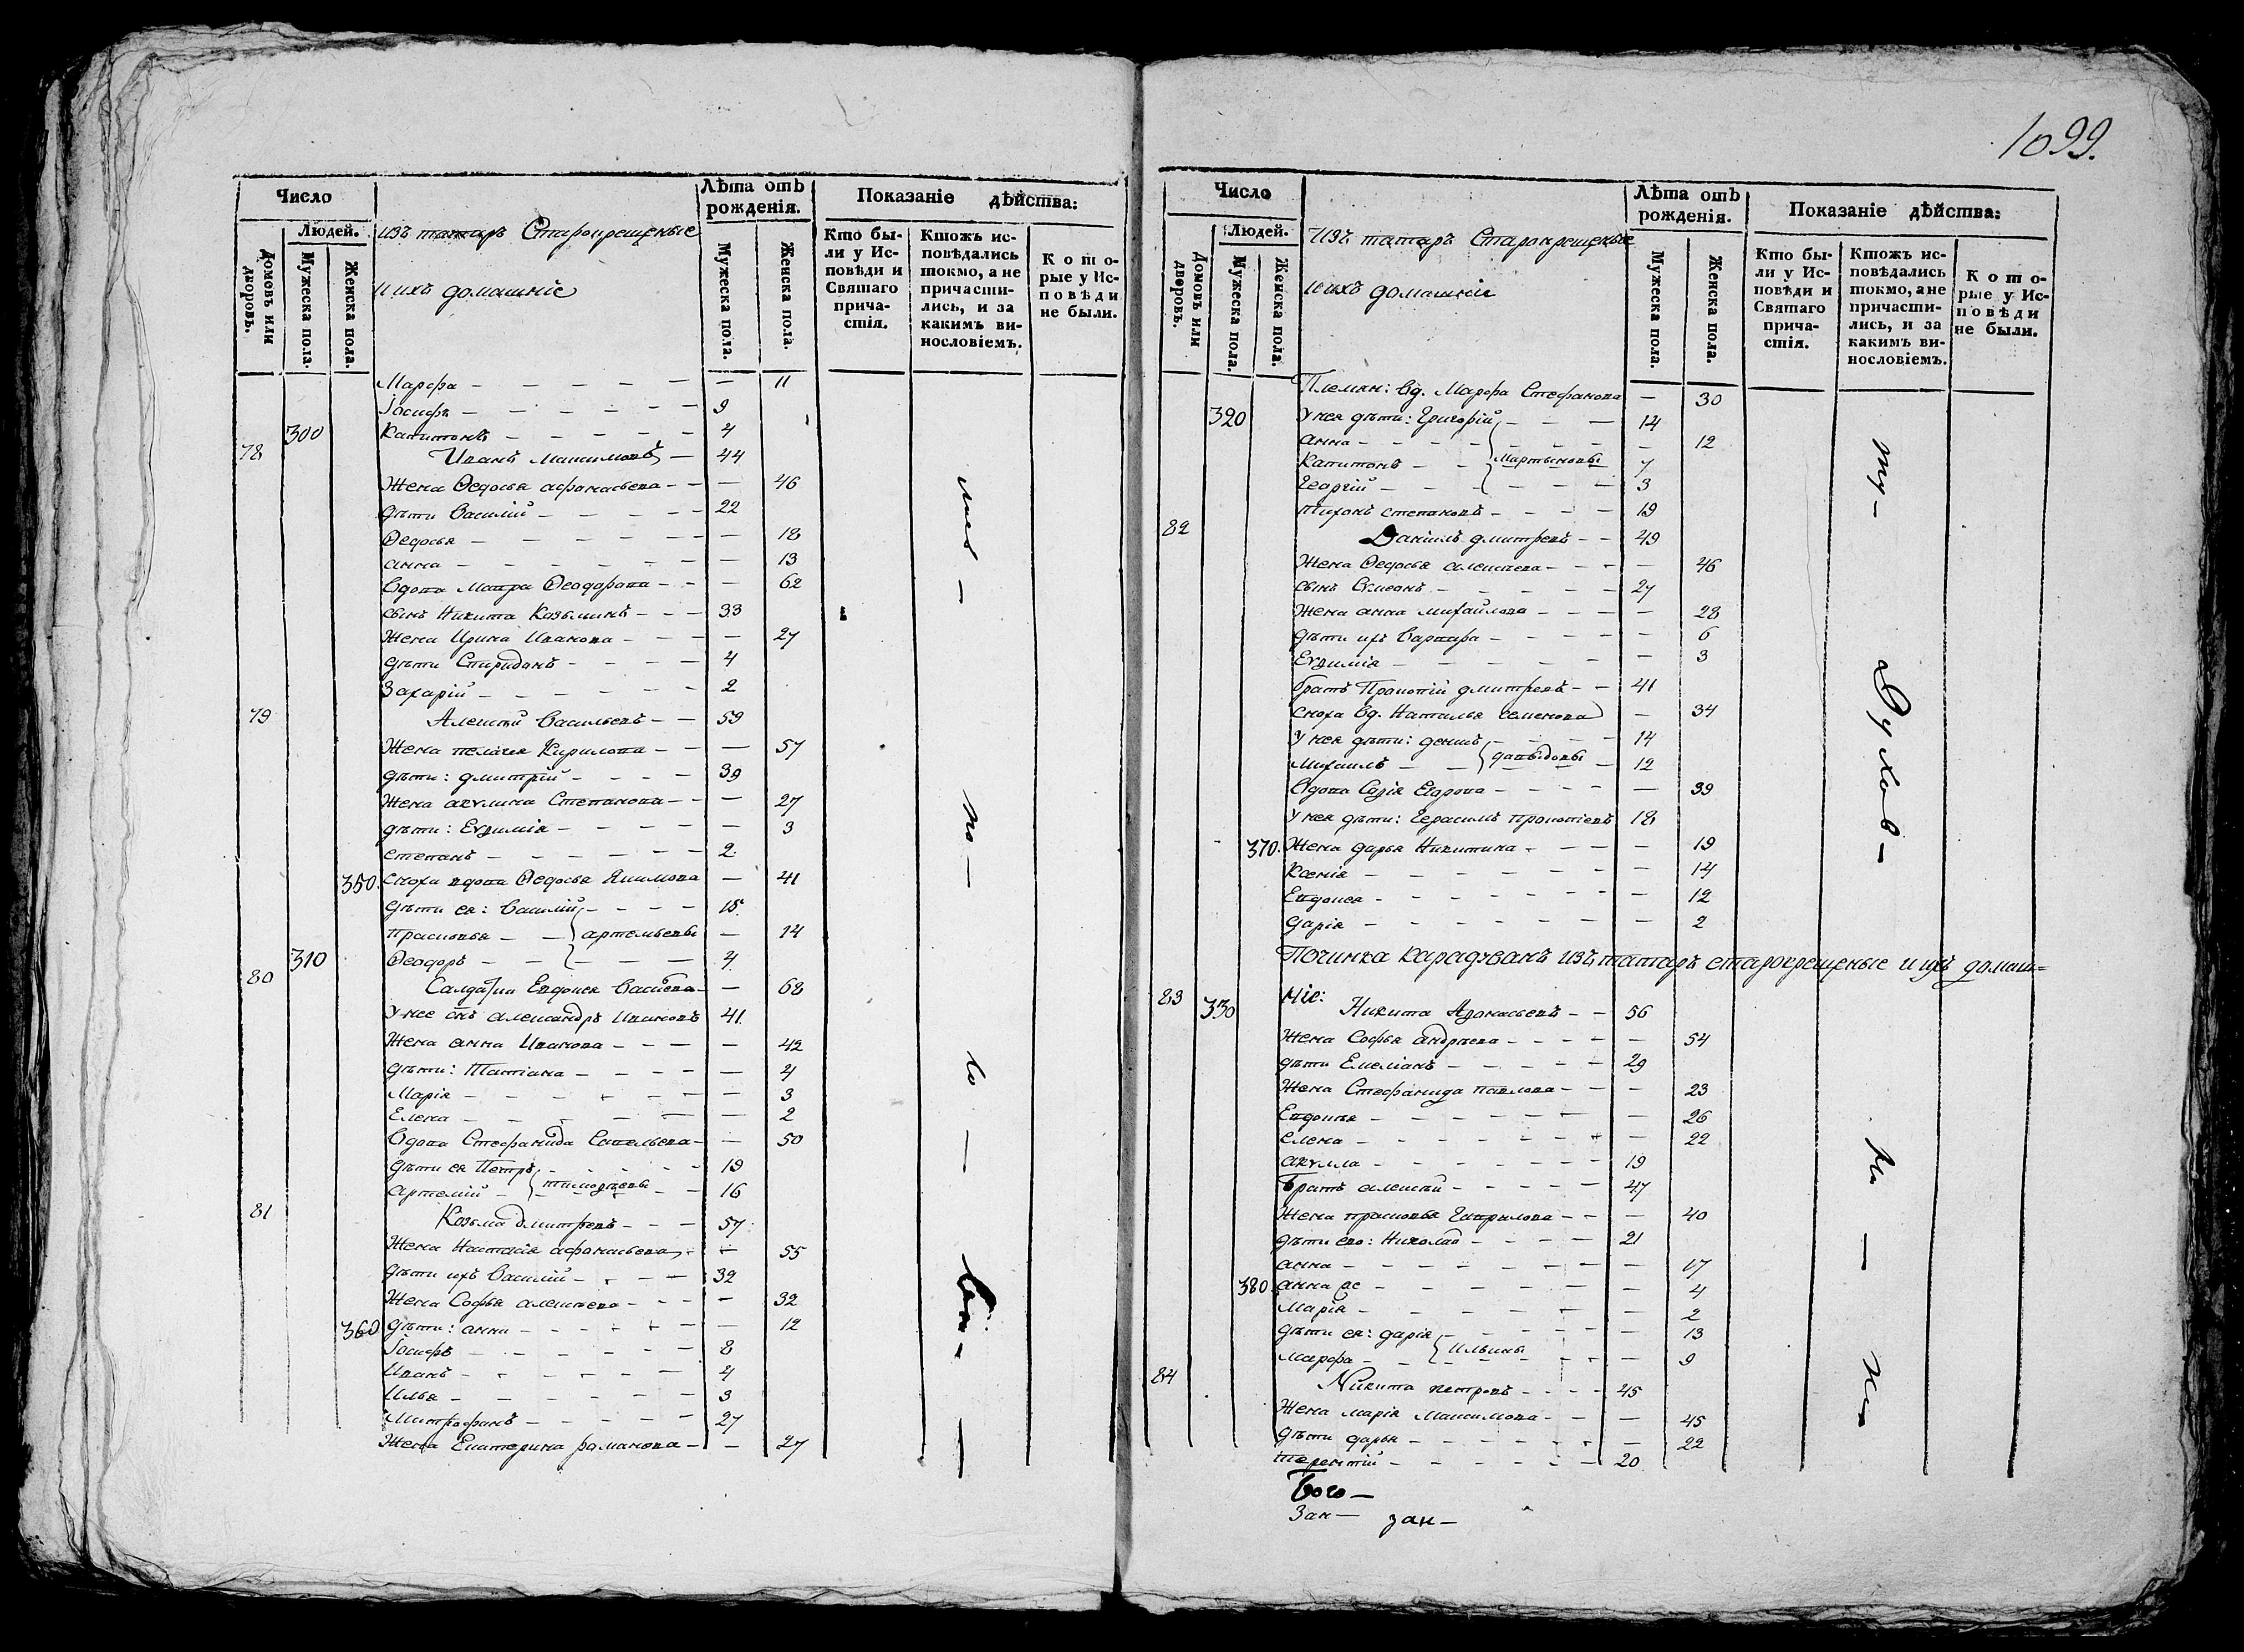 1099.
Число
Людей.
Домовъ или дворовъ.
Мужеска пола.
Женска пола.
изъ татаръ Старокрещеные
и ихъ домашніе
Лѣта отъ рожденія.
Мужеска пола.
Женска пола.
Показаніе дѣйства:
Кто бы-
ли у Ис-
повѣди и
Святаго
прича-
стія.
Ктожъ ис-
повѣдались
токмо, а не
причасти-
лись, и за
какимъ ви-
нословіемъ.
Кото-
рые у Ис-
повѣди
не были.
Марфа — — 11
Іосифъ — 9
300 Капитонъ — 4
78 Иванъ Максимовъ — 44
Жена Ѳедосья афонасьева — — 46
дѣти Василій — 22
Ѳедосья — — 18
анна — — 13
Вдова Мавра Ѳеодорова — — 62
сынъ Никита Козьминъ — 33
Жена Ирина Иванова — — 27
дѣти Спиридонъ — 4
Захарій — 2
79 Алексѣй Васильевъ — 59
Жена пелагея Кирилова — — 57
дѣти: дмитрій — 39
Жена акулина Степанова — — 27
дѣти: Евѳимія — — 3
степанъ — 2
350. сноха вдова Ѳедосья Якимова — 41
дѣти ея: Василій — 15
прасковья — артемьевы — 14
310 Ѳеодоръ — 4
80 Салдатка Евдокея Васильева — 68
У нее сынъ александръ Ивановъ 41
Жена анна Иванова — — 42
дѣти: Татіана — — 4
Марія — — 3
Елена — — 2
Вдова Стефанида Савельева — — 50
дѣти ея Петръ — 19
артемій — тимоѳеевы — 16
81 Козьма дмитревъ — 57
Жена Настасія афонасьева — 55
дѣти ихъ Василій — 32
Жена Софья алексѣева — — 32
360 дѣти: анна — — 12
Іосифъ — 8
Иванъ — 4
Илья — 3
Митрофанъ — 27
Жена Екатерина романова — — 27
по —
Число
Людей.
Домовъ или дворовъ.
Мужеска пола.
Женска пола.
Изъ татаръ Старокрещеные
и ихъ домашніе
Лѣта отъ рожденія.
Мужеска пола.
Женска пола.
Показаніе дѣйства:
Кто бы-
ли у Ис-
повѣди и
Святаго
прича-
стія.
Ктожъ ис-
повѣдались
токмо, а не
причасти-
лись, и за
какимъ ви-
нословіемъ.
Кото-
рые у Ис-
повѣди
не были.
Племян: вд. Марфа Стефанова — 30
320 У нея дѣти: Григорій — 14
анна — — 12
Капитонъ — Мартыновы 7
Георгій — 3
тихонъ степановъ — 19
82 Даніилъ дмитревъ — 49
Жена Ѳедосья алексѣева — — 46
сынъ Симеонъ — 27
Жена анна михайлова — — 28
дѣти ихъ Варвара — — 6
Евѳимія — — 3
братъ Прокопій дмитревъ — 41
сноха вд. Наталья семенова — 34
У нея дѣти: денисъ — 14
Михаилъ — давыдовы — 12
Вдова Софія Егорова — — 39
У нея дѣти: Герасимъ прокопіевъ 18
370. Жена дарья Никитина — — 19
Ксенія — — 14
Евдокея — — 12
дарія — — 2
Починка Карадуванъ изъ татаръ старокрещеные и ихъ домаш=
ніе:
83 330 Никита Афонасьевъ — 56
Жена Софья андреева — — 54
дѣти Емеліанъ — 29
Жена Стефанида павлова — — 23
Евдокія — — 26
елена — — 22
акила — 19
братъ алексѣй — 47
Жена прасковья Гаврилова — — 40
дѣти его: Николай — 21
анна — — 17
380 анна же — — 4
Марія — — 2
дѣти ея: дарія — — 13
Марфа — Ильины — 9
84 Никита петровъ — 45
Жена марія Максимова — — 45
дѣти дарья — — 22
терентій — 20
ту —
Духов —
Бого —
Зак — зак —